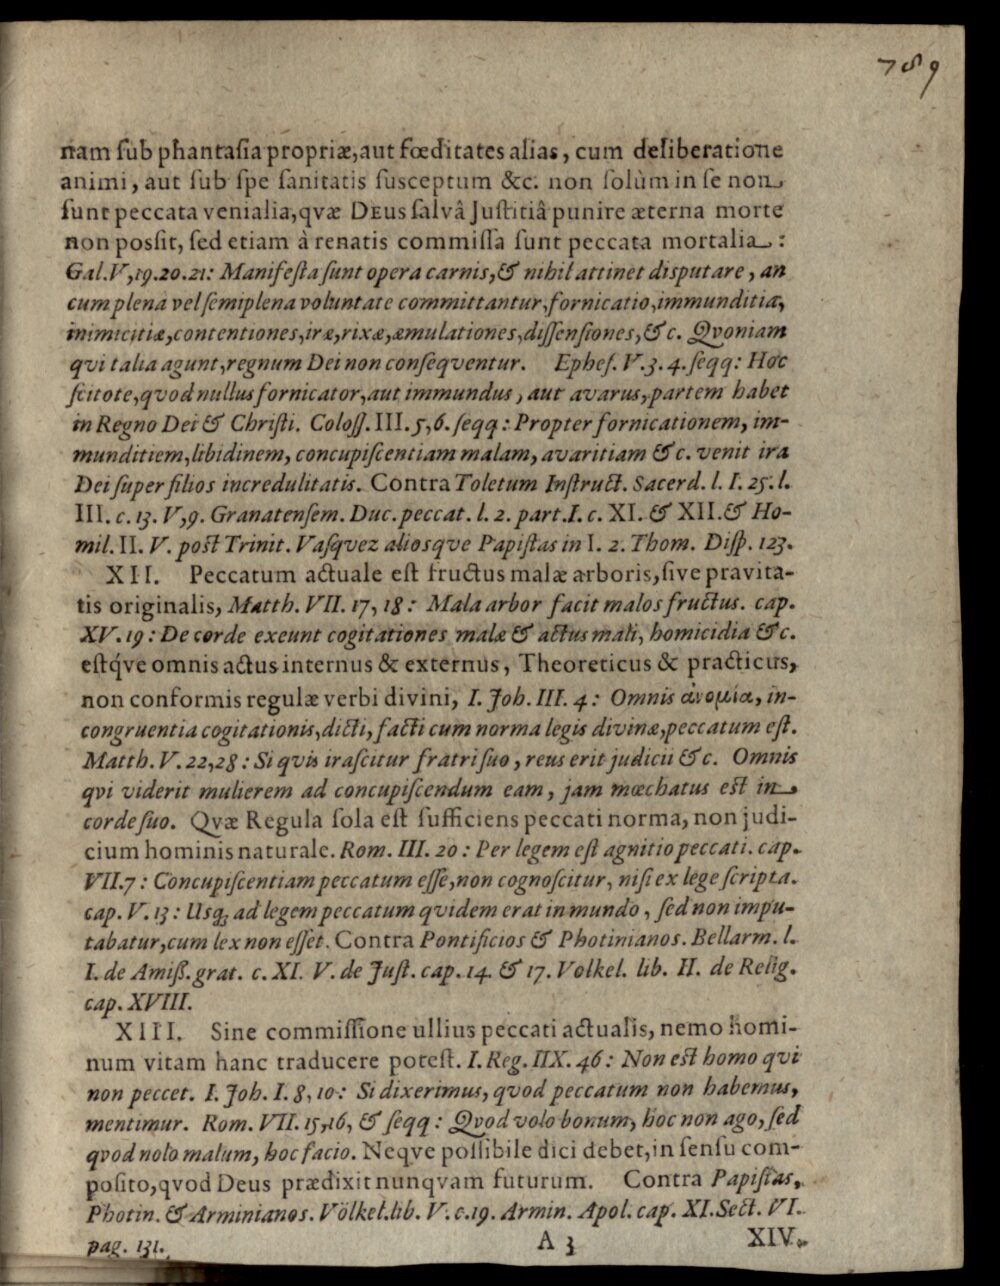 789
nam ſub phantaſia propriæ, aut fœditates alias, cum deliberatione
animi, aut ſub ſpe ſanitatis ſusceptum &c. non ſolùm in ſe non
ſunt peccata venialia, qvæ DEus ſalvâ Juſtitiâ punire æterna morte
non poſsit, ſed etiam à renatis commiſſa ſunt peccata mortalia:
Gal. V, 19. 20. 21: Manifeſta ſunt opera carnis, & nihil attinet disputare, an
cum plena vel ſemiplena voluntate committantur, fornicatio, immunditia,
inimicitiæ, contentiones, iræ, rixæ, æmulationes, diſſenſiones, & c. Qvoniam
qvi talia agunt, regnum Dei non conſeqventur. Epheſ. V. 3. 4. ſeqq: Hoc
ſcitote, qvod nullus fornicator, aut immundus, aut avarus, partem habet
in Regno Dei & Chriſti. Coloſſ. III. 5, 6. ſeqq: Propter fornicationem, im-
munditiem, libidinem, concupiſcentiam malam, avaritiam & c. venit ira
Dei ſuper filios incredulitatis. Contra Toletum Inſtruct. Sacerd. l. I. 25. l.
III. c. 13. V, 9. Granatenſem. Duc. peccat. l. 2. part. I. c. XI. & XII. & Ho-
mil. II. V. poſt Trinit. Vaſqvez aliosqve Papiſtas in I. 2. Thom. Diſp. 123.
XII. Peccatum actuale eſt fructus malæ arboris, ſive pravita-
tis originalis, Matth. VII. 17, 18: Mala arbor facit malos fructus. cap.
XV. 19: De corde exeunt cogitationes malæ & actus mali, homicidia & c.
eſtq́ve omnis actus internus & externus, Theoreticus & practicus,
non conformis regulæ verbi divini, I. Joh. III. 4: Omnis ἀνομία, in-
congruentia cogitationis, dicti, facti cum norma legis divinæ, peccatum eſt.
Matth. V. 22, 28: Si qvis iraſcitur fratri ſuo, reus erit judicii & c. Omnis
qvi viderit mulierem ad concupiſcendum eam, jam mœchatus eſt in
corde ſuo. Qvæ Regula ſola eſt ſufficiens peccati norma, non judi-
cium hominis naturale. Rom. III. 20: Per legem eſt agnitio peccati. cap.
VII. 7: Concupiſcentiam peccatum eſſe, non cognoſcitur, niſi ex lege ſcripta.
cap. V. 13: Usq; ad legem peccatum qvidem erat in mundo, ſed non impu-
tabatur, cum lex non eſſet. Contra Pontificios & Photinianos. Bellarm. l.
I. de Amiß. grat. c. XI. V. de Juſt. cap. 14. & 17. Volkel. lib. II. de Relig.
cap. XVIII.
XIII. Sine commiſſione ullius peccati actualis, nemo homi-
num vitam hanc traducere poteſt. I. Reg. IIX. 46: Non eſt homo qvi
non peccet. I. Joh. I. 8, 10: Si dixerimus, qvod peccatum non habemus,
mentimur. Rom. VII. 15, 16, & ſeqq: Qvod volo bonum, hoc non ago, ſed
qvod nolo malum, hoc facio. Neqve poſſibile dici debet, in ſenſu com-
poſito, qvod Deus prædixit nunqvam futurum. Contra Papiſtas,
Photin. & Arminianos. Völkel. lib. V. c. 19. Armin. Apol. cap. XI. Sect. VI.
pag. 131.
A 3
XIV.